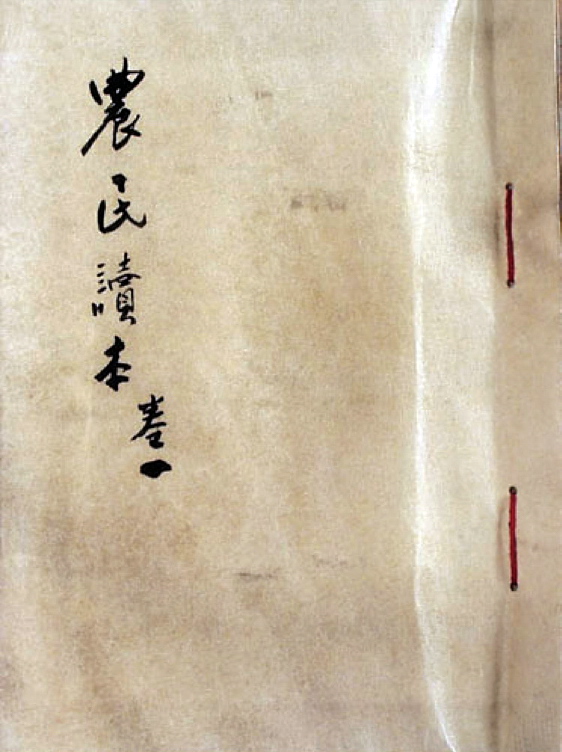 農民讀本
卷一